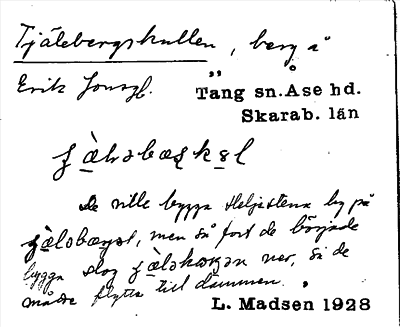 Tjälebergskullen, berg å
Erik Jonsgb.
Tång sn. Åse hd.
Skarab. län
De ville bygga Heljestena by på
men så fort de började
bygga slog ner, så de
måste flytta till dammen.
L. Madsen 1928